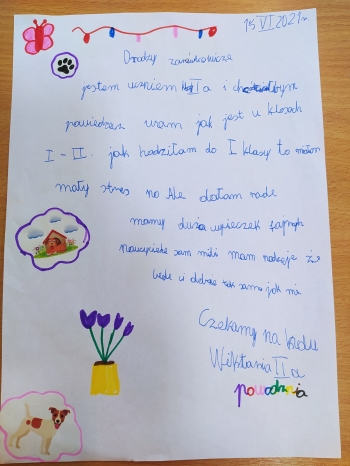 15 VI 2021r
Drodzy zerówkowicze
jestem uczniem IIa i chciałbym
powiedzieć wam jak jest w klasach
I-II. jak hodziłam do I klasy to miałam
mały stres no Ale dałam rade
mamy dużo wycieczek fajnych
Nauczyciele sam mili mam nadzeje że
będe ci dobże tak samo jak mi
Czekamy na
Wiktoria II a
powodzenia